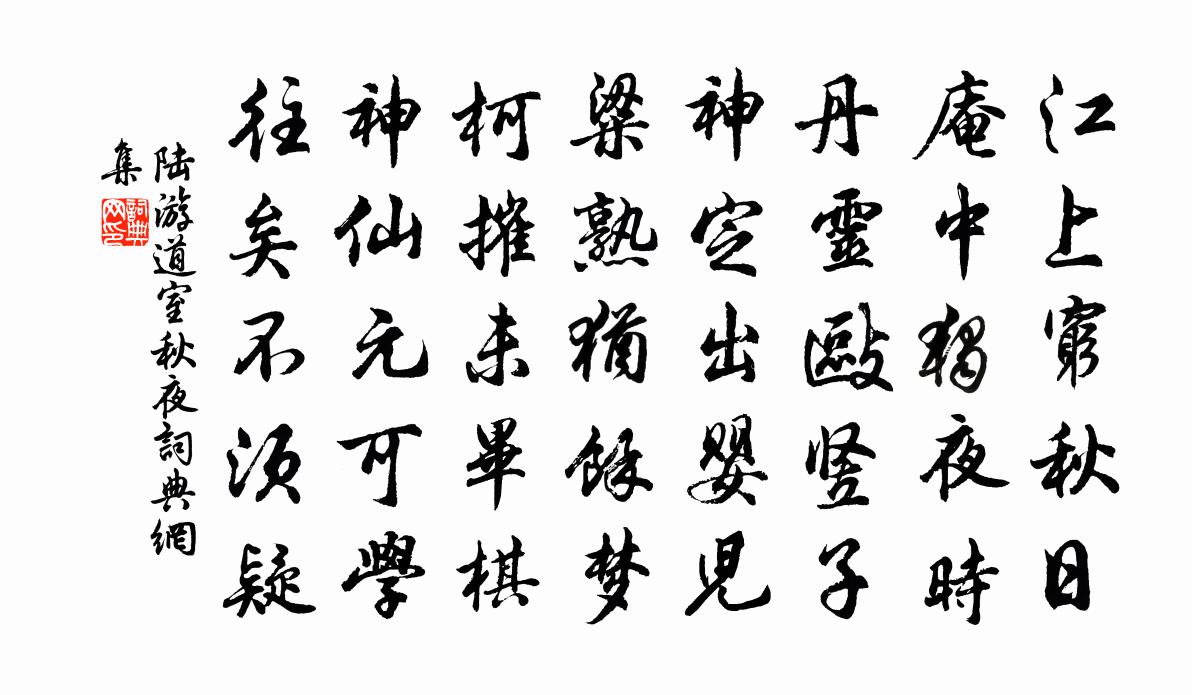 江上窮秋日
庵中獨夜時
丹靈毆竖子
神定出嬰兒
粱熟猶餘梦
柯摧未畢棋
神仙元可學
往矣不須疑
陆游道室秋夜詞典網
集
詞典网印